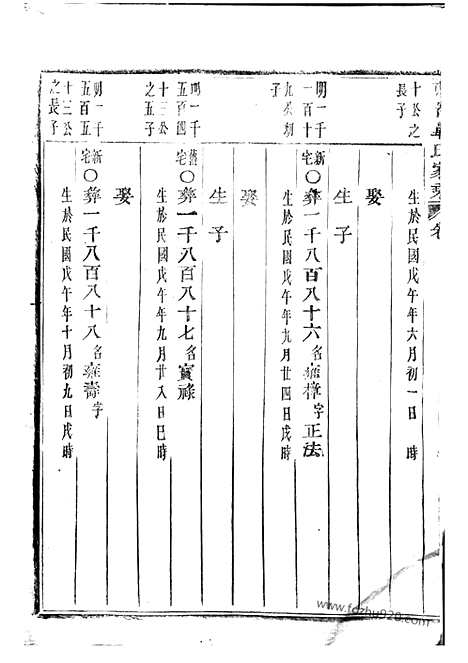 十公之
長子
生於民國戊午年六月初一日 時
娶
生子
明一千
一百十
九公初
子
新宅〇彝一千八百八十六名雍樟字正法
生於民國戊午年九月廿四日戌時
娶
生子
明一千
五百四
十三公
之五子
舊宅〇彝一千八百八十七名寶祿
生於民國戊午年九月廿八日巳時
娶
明一千
五百五
十三公
之長子
新宅〇彝一千八百八十八名雍壽字
生於民國戊午年十月初九日戌時
www.fczhu920.com